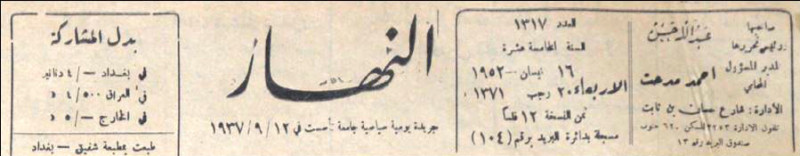 صاحبها
ورئيس تحريرها
عبدالله حسن
المدير المسؤول
المحامي
احمد مدحت
الادارة: شارع حسان بن ثابت
تلفون الادارة ٣٢٥٣ المسكن ٦٢٠ جنوب
صندوق البريد رقم ١٣
العدد ١٣١٧
السنة الخامسة عشرة
١٦ نيسان - ١٩٥٢
الاربعاء ٢٠ رجب ١٣٧١
ثمن النسخة ١٢ فلساً
مسجلة بدائرة البريد برقم (١٠٤)
النهار
جريدة يومية سياسية جامعة تأسست في ١٢/٩/١٩٣٧
بدل المشاركة
في بغداد -/٤ دنانير
في العراق ٥٠٠/٤ د
في الخارج -/٥ د
طبعت بمطبعة شفيق - بغداد